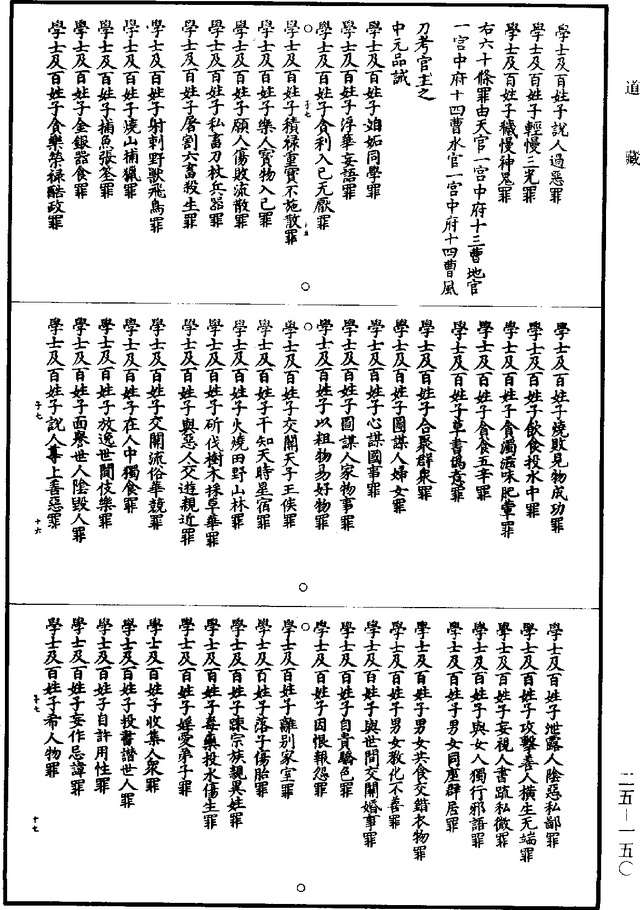 道藏
學士及百姓子說人過惡罪
學士及百姓子輕慢三光罪
學士及百姓子穢慢神炁罪
右六十條罪由天官一宮中府十三曹地官
一宮中府十四曹水官一宮中府十四曹風
刀考官主之
中元品誡
學士及百姓子妬妒同學罪
學士及百姓子浮華妄語罪
學士及百姓子貪利入已无厭罪
學士及百姓子積祿重寳不施散罪
學士及百姓子樂人寳物入已罪
學士及百姓子願人傷敗流散罪
學士及百姓子私畜刀杖兵器罪
學士及百姓子屠割六畜殺生罪
學士及百姓子射刺野獸飛鳥罪
學士及百姓子燒山捕獵罪
學士及百姓子捕魚張筌罪
學士及百姓子金銀器食罪
學士及百姓子貪樂榮祿酷政罪
學士及百姓子燒敗見物成功罪
學士及百姓子飲食投水中罪
學士及百姓子貪濁滋味肥葷罪
學士及百姓子貪食五辛罪
學士及百姓子草書僞意罪
學士及百姓子合聚群衆罪
學士及百姓子圖謀人婦女罪
學士及百姓子心謀國事罪
學士及百姓子圖謀人家物事罪
學士及百姓子以粗物易好物罪
學士及百姓子交關天子王侯罪
學士及百姓子干知天時星宿罪
學士及百姓子火燒田野山林罪
學士及百姓子斫伐樹木採草華罪
學士及百姓子與惡人交遊親近罪
學士及百姓子交關流俗華競罪
學士及百姓子在人中獨食罪
學士及百姓子放逸世間伎樂罪
學士及百姓子面譽世人陰毀人罪
學士及百姓子說人尊上善惡罪
子七
十六
學士及百姓子泄露人陰惡私鄙罪
學士及百姓子攻擊善人橫生无端罪
學士及百姓子妄視人書疏私微罪
學士及百姓子與女人獨行邪語罪
學士及百姓子男女同座群居罪
學士及百姓子男女共食交錯衣物罪
學士及百姓子男女敎化不善罪
學士及百姓子與世間交關婚事罪
學士及百姓子自貴驕色罪
學士及百姓子因恨報怨罪
學士及百姓子離别家室罪
學士及百姓子落子傷胎罪
學士及百姓子踈宗族親異姓罪
學士及百姓子毒藥投水傷生罪
學士及百姓子婬愛弟子罪
學士及百姓子收集人衆罪
學士及百姓子投書譖世人罪
學士及百姓子自許用性罪
學士及百姓子妄作忌諱罪
學士及百姓子希人物罪
子七
十七
二五—一五〇